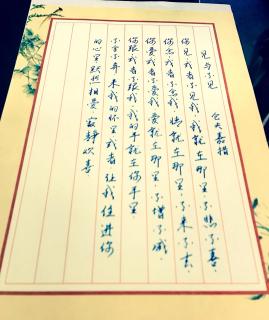 见与不见
仓央嘉措
你见或者不见我·我就在那里·不悲不喜·
你念或者不念我·情就在那里·不来不去·
你爱或者不爱我·爱就在那里·不增不减·
你跟或者不跟我·我的手就在你手里·
不舍不弃·来我的怀里或者·让我住进你
的心里默然相爱·寂静欢喜